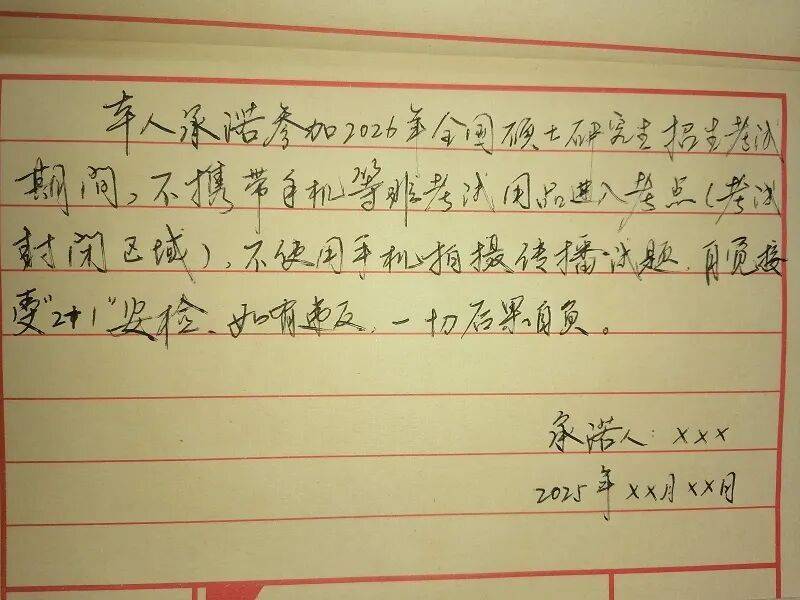 本人承诺参加2026年全国硕士研究生招生考试
期间，不携带手机等非考试用品进入考点（考试
封闭区域），不使用手机拍摄传播试题，自觉接
受“2+1”安检、如有违反，一切后果自负。
承诺人：×××
2025年××月××日